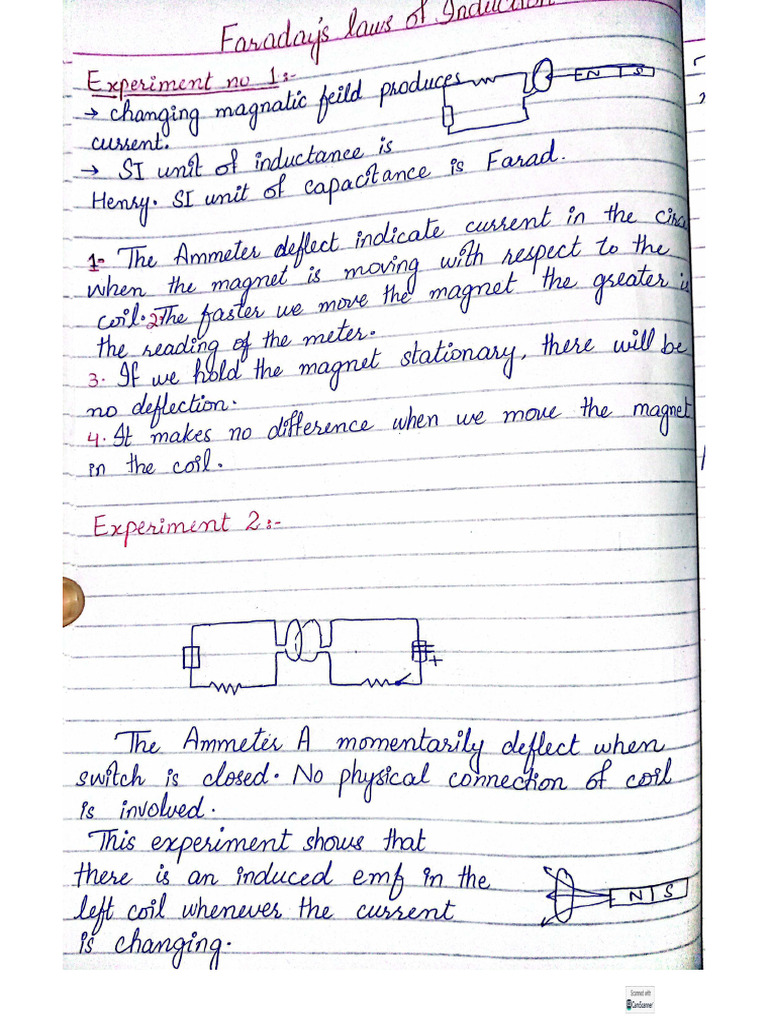 Faraday's laws of Induction
Experiment no 1:-
→ changing magnatic feild produces
current.
→ SI unit of inductance is
Henry. SI unit of capacitance is Farad.
N S
1- The Ammeter deflect indicate current in the circ
when the magnet is moving with respect to the
coil. 2- The faster we move the magnet the greater is
the reading of the meter.
3. If we hold the magnet stationary, there will be
no deflection.
4. It makes no difference when we move the magnet
in the coil.
Experiment 2:-
+
The Ammeter A momentarily deflect when
switch is closed. No physical connection of coil
is involved.
This experiment shows that
there is an induced emf in the
left coil whenever the current
is changing.
N S
Scanned with
CamScanner